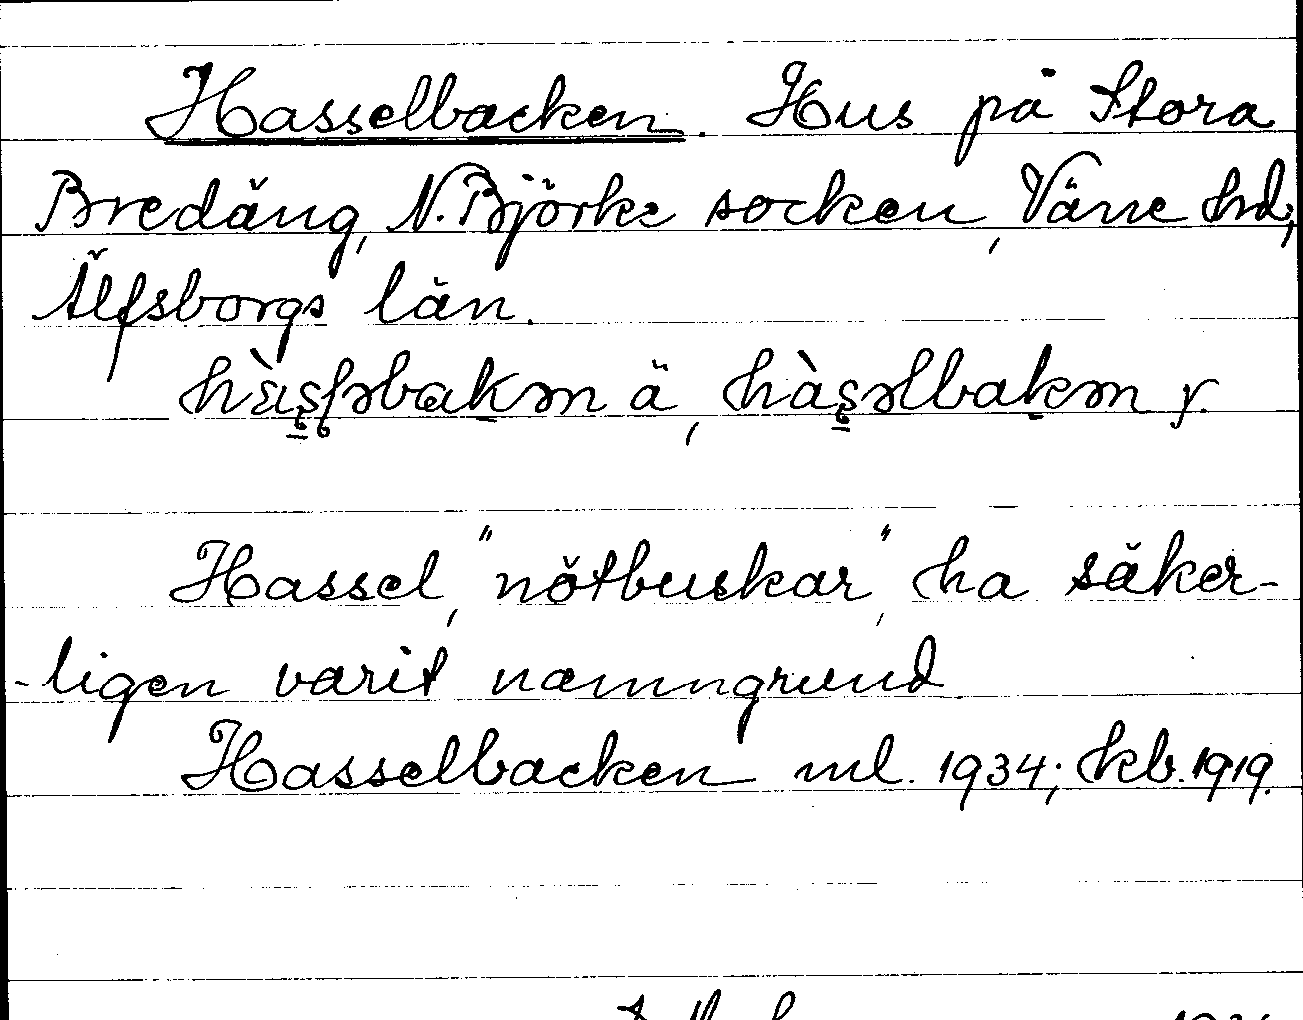 Hasselbacken. Hus på Stora
Bredäng, N. Björke socken, Väne hd,
Älfsborgs län.
ä, y.
Hassel, "nötbuskar", ha säker-
-ligen varit namngrund
Hasselbacken ml. 1934; kb. 1919.